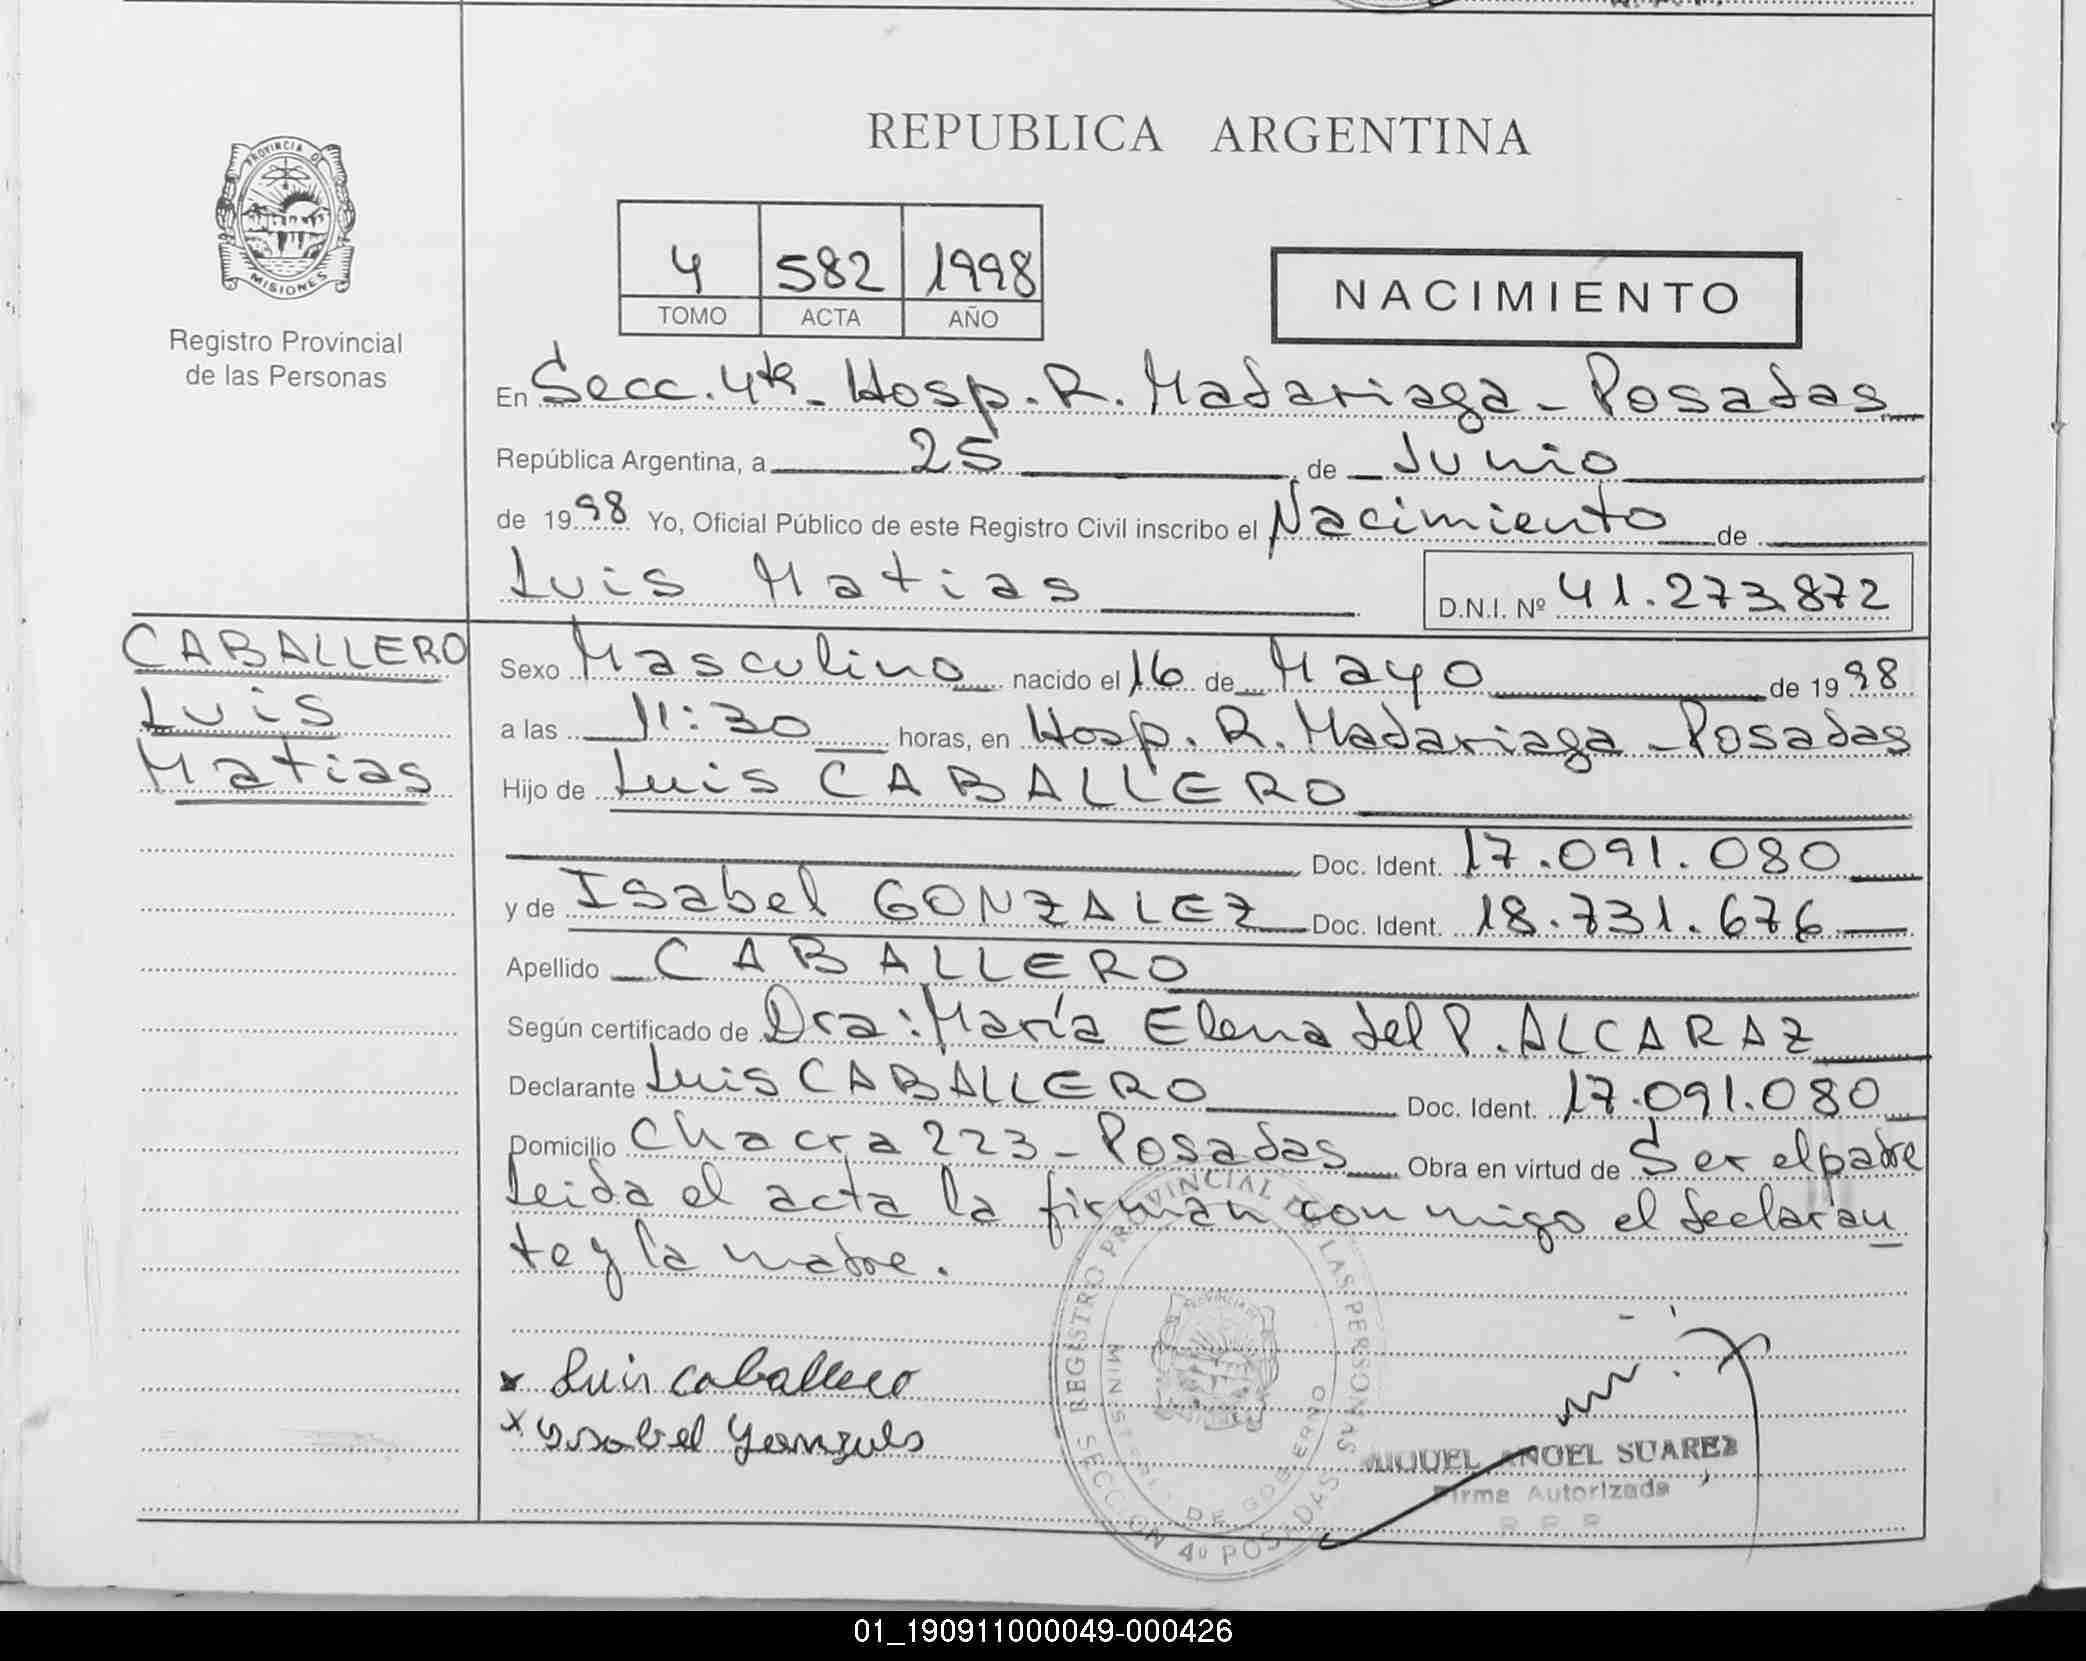 REPUBLICA ARGENTINA
PROVINCIA DE
MISIONES
Registro Provincial
de las Personas
4 582 1998
TOMO ACTA AÑO
NACIMIENTO
En Secc. 4ta - Hosp. R. Madariaga - Posadas
República Argentina, a 25 de Junio
de 1998 Yo, Oficial Público de este Registro Civil inscribo el Nacimiento de
Luis Matias D.N.I. Nº 41.273.872
CABALLERO
Luis
Matias
Sexo Masculino nacido el 16 de Mayo de 1998
a las 11:30 horas, en Hosp. R. Madariaga - Posadas
Hijo de Luis CABALLERO
Doc. Ident. 17.091.080
y de Isabel GONZALEZ Doc. Ident. 18.731.676
Apellido CABALLERO
Según certificado de Dra: María Elena del P. ALCARAZ
Declarante Luis CABALLERO Doc. Ident. 17.091.080
Domicilio Chacra 223 - Posadas Obra en virtud de Ser el padre
Leida el acta la firman con migo el declaran
te y la madre.
REGISTRO PROVINCIAL DE LAS PERSONAS
MINISTERIO DE GOBIERNO
SECCION 4º POSADAS
x Luis Caballero
x Ysabel Gonzales
MIGUEL ANGEL SUAREZ
Firma Autorizada
R P P
01_190911000049-000426